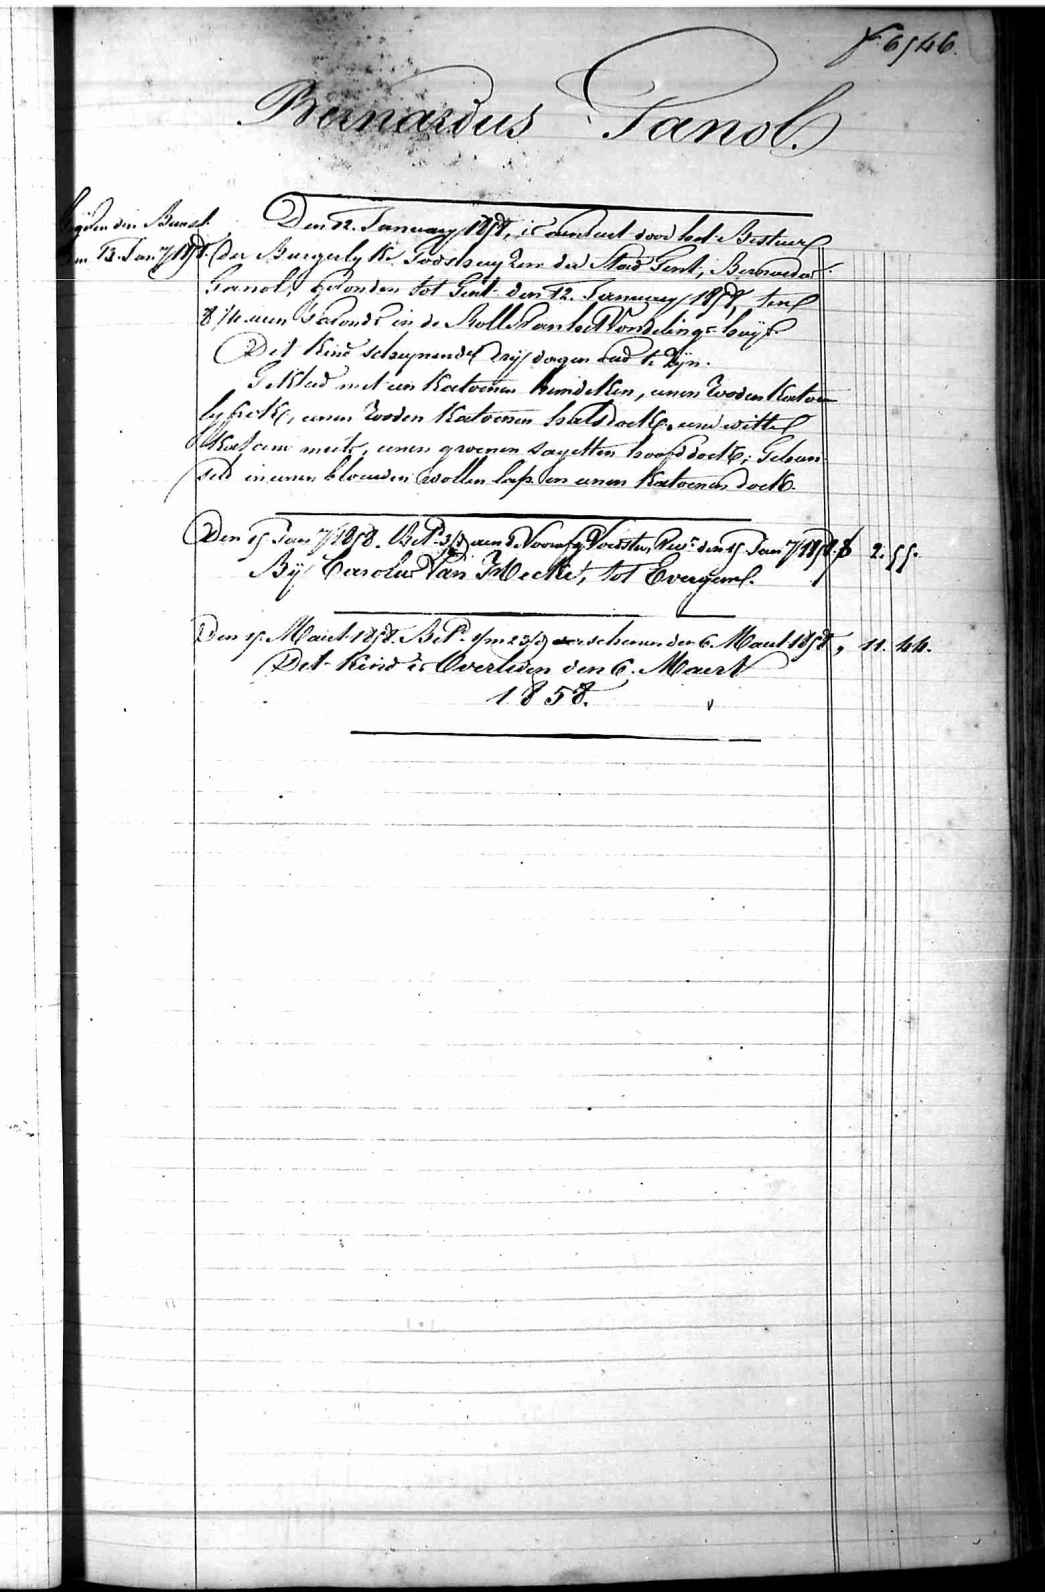 f. 6546.
Bernardus Ganol.
den Bunst.
den 13. Jan.y 1858.
Den 12. January 1858, is aenveert door het Bestuer
der Burgerlyke Godshuyzen der Stad Gent, Bernardus
Ganol, gevonden tot Gent den 12. January 1858, ten
8 1/4 uren 's avonds in de Rolle van het Vondelings-huys
Dit Kind schynende dry dagen oud te zyn.
Gekleed met een Katoenen hemdeken, eenen rooden Katoenen
lyfrok, eenen rooden Katoenen halsdoek, eene witte
Katoene muts, eenen groenen sayetten hoofddoek; Gebun-
seld in eenen blauwen wollen lap en eenen Katoenen doek.
Den 15 Jan.y 1858. Bet. aen d. Voorsz. Voedster, den 15 Jan.y 1858. f 2. 55.
By Carolus Van Hecke, tot Evergem.
Den 15. Maert 1858. Bet. verschenen den 6. Maert 1858, " 11. 44.
Det Kind is Overleden den 6. Maert
1858.